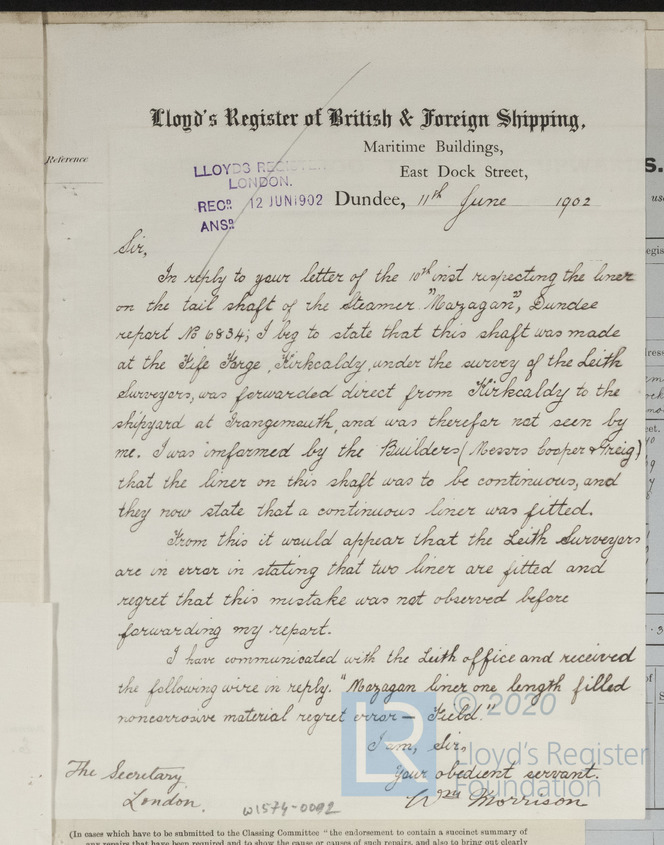 Lloyd's Register of British & Foreign Shipping,
Maritime Buildings,
East Dock Street,
Reference
LLOYDS REGISTER
LONDON.
REC^D. 12 JUN 1902
ANS^D.
Dundee, 11th June 1902
Sir,
In reply to your letter of the 10th inst respecting the liner
on the tail shaft of the Steamer "Mazagan", Dundee
report No 6834; I beg to state that this shaft was made
at the Fife Forge, Kirkcaldy, under the survey of the Leith
Surveyors, was forwarded direct from Kirkcaldy to the
shipyard at Grangemouth, and was therefor not seen by
me. I was imformed by the Builders (Messrs Cooper & Greig)
that the liner on this shaft was to be continuous, and
they now state that a continuous liner was fitted.
From this it would appear that the Leith Surveyors
are in error in stating that two liner are fitted and
regret that this mistake was not observed before
forwarding my report.
I have communicated with the Leith office and received
the following wire in reply. "Mazagan liner one length filled
noncorrosive material regret error — Field."
I am, Sir,
Your obedient servant.
Wm Morrison
The Secretary
London.
W1574-0092
© 2020
Lloyd's Register
Foundation
LR
(In cases which have to be submitted to the Classing Committee "the endorsement to contain a succinct summary of
any repairs that have been required and to show the cause or causes of such repairs, and also to bring out clearly